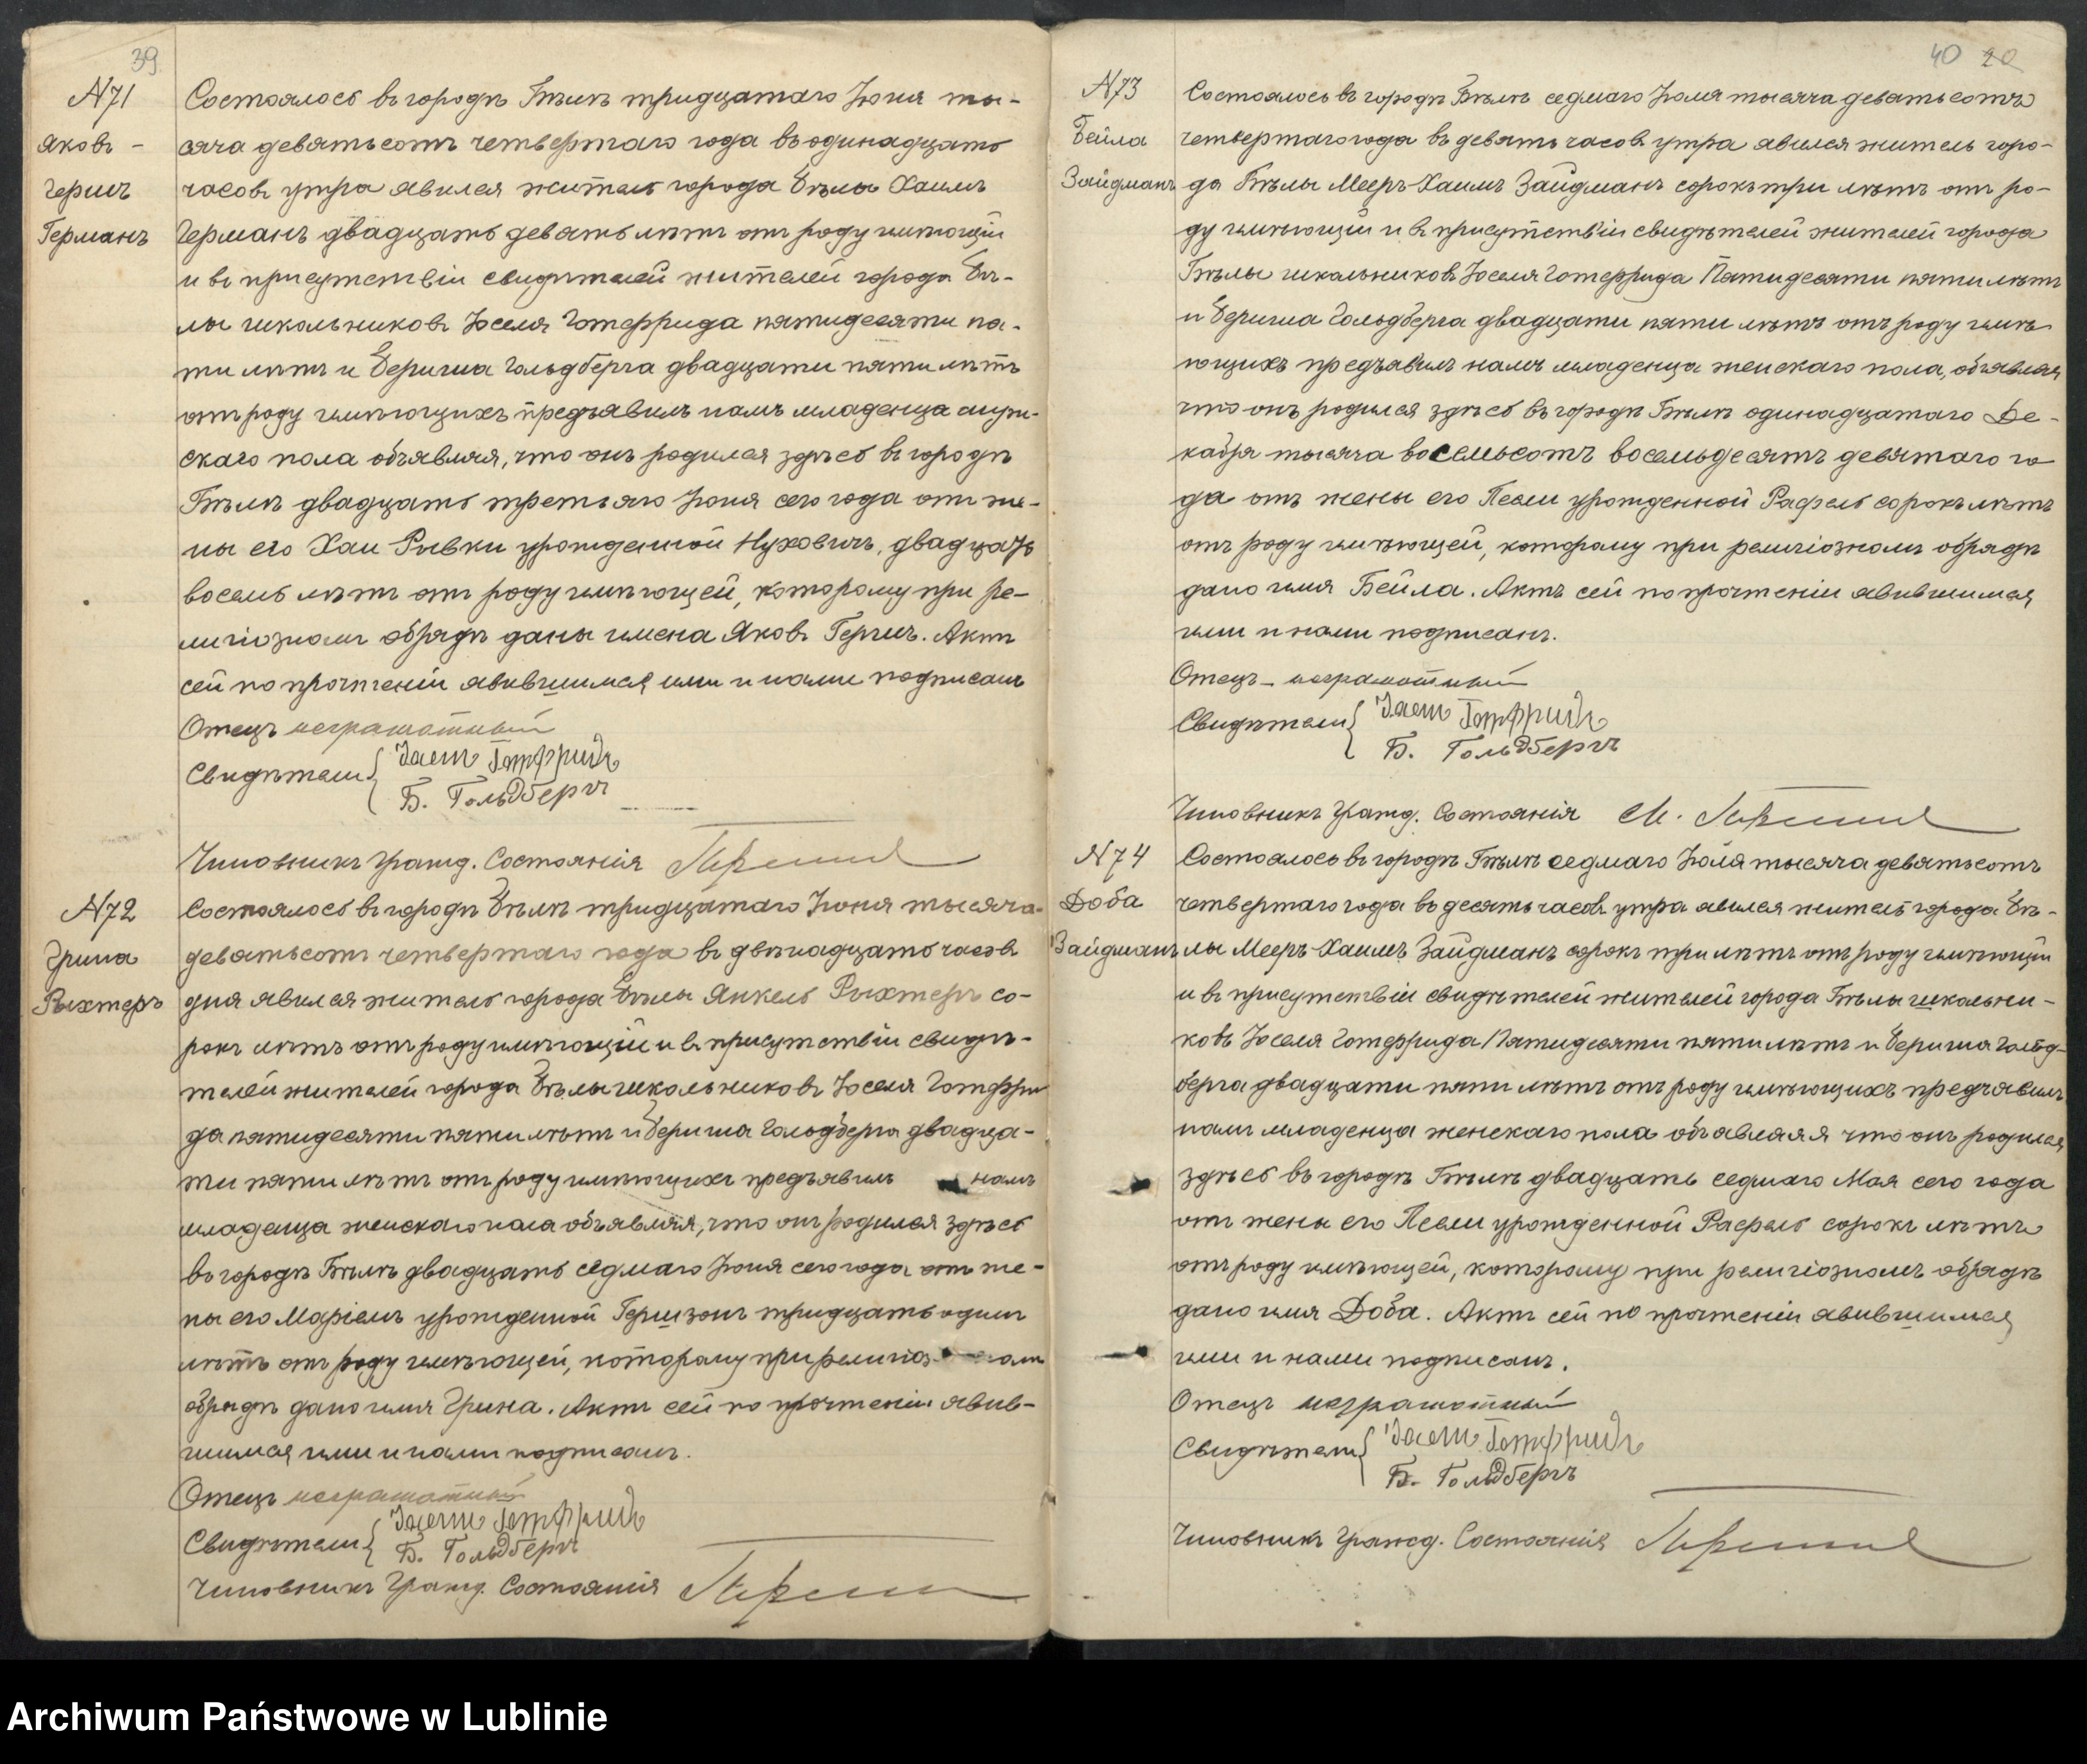 39
N71
Яковъ-
Гершъ
Германъ
Состоялось въ городѣ Бѣлѣ тридцатаго Іюня ты-
сяча девятьсотъ четвертаго года въ одинадцать
часовъ утра явился житель города Бѣлы Хаимъ
Германъ двадцать девять лѣтъ отъ роду имѣющій
и въ присутствіи свидѣтелей жителей города Бѣ-
лы школьниковъ Іоселя Готфрида пятидесяти пя-
ти лѣтъ и Бериша Гольдберга двадцати пяти лѣтъ
отъ роду имѣющихъ предъявилъ намъ младенца муж-
скаго пола объявляя, что онъ родился здѣсь въ городѣ
Бѣлѣ двадцать третьяго Іюня сего года отъ же-
ны его Хаи Ривки урожденной Нуховичъ, двадцать
восемь лѣтъ отъ роду имѣющей, которому при ре-
лигіозномъ обрядѣ даны имена Яковъ Гершъ. Актъ
сей по прочтеніи явившимся, ими и нами подписанъ
Отецъ неграмотный
Свидѣтели Іосель Готфридъ
Б. Гольдбергъ
Чиновникъ Гражд. Состоянія
N72
Грина
Рыхтеръ
Состоялось въ городѣ Бѣлѣ тридцатаго Іюня тысяча
девятьсотъ четвертаго года въ двѣнадцать часовъ
дня явился житель города Бѣлы Янкель Рыхтеръ со-
рокъ лѣтъ отъ роду имѣющій и въ присутствіи свидѣ-
телей жителей города Бѣлы школьниковъ Іоселя Готфри
да пятидесяти пяти лѣтъ и Бериша Гольдберга двадца-
ти пяти лѣтъ отъ роду имѣющихъ предъявилъ намъ
младенца женскаго пола объявляя, что онъ родился здѣсь
въ городѣ Бѣлѣ двадцать седмаго Іюня сего года отъ же-
ны его Маріемъ урожденной Гершзонъ тридцать одинъ
лѣтъ отъ роду имѣющей, которому при религіоз омъ
обрядѣ дано имя Грина. Актъ сей по прочтеніи явив-
шимся, ими и нами подписанъ.
Отецъ неграмотный
Свидѣтели Іосель Готфридъ
Б. Гольдбергъ
Чиновникъ Гражд. Состоянія
40 20
N73
Бейла
Зайдманъ
Состоялось въ городѣ Бѣлѣ седмаго Іюля тысяча девятьсотъ
четвертаго года въ девять часовъ утра явился житель горо-
да Бѣлы Мееръ-Хаимъ Зайдманъ сорокъ три лѣтъ отъ ро-
ду имѣющій и въ присутствіи свидѣтелей жителей города
Бѣлы школьниковъ Іоселя Готфрида Пятидесяти пяти лѣтъ
и Бериша Гольдберга двадцати пяти лѣтъ отъ роду имѣ
ющихъ предъявилъ намъ младенца женскаго пола, объявляя
что онъ родился здѣсь въ городѣ Бѣлѣ одинадцатаго Де-
кабря тысяча восемьсотъ восемьдесятъ девятаго го
да отъ жены его Песли урожденной Рафель сорокъ лѣтъ
отъ роду имѣющей, которому при религіозномъ обрядѣ
дано имя Бейла. Актъ сей по прочтеніи явившимся,
ими и нами подписанъ.
Отецъ - неграмотный
Свидѣтели Іосель Готфридъ
Б. Гольдбергъ
Чиновникъ Гражд. Состоянія М.
N74
Доба
Зайдманъ
Состоялось въ городѣ Бѣлѣ седмаго Іюля тысяча девятьсотъ
четвертаго года въ десять часовъ утра явился житель города Бѣ-
лы Мееръ-Хаимъ Зайдманъ сорокъ три лѣтъ отъ роду имѣющій
и въ присутствіи свидѣтелей жителей города Бѣлы школьни-
ковъ Іоселя Готфрида Пятидесяти пяти лѣтъ и Бериша Гольд-
берга двадцати пяти лѣтъ отъ роду имѣющихъ предъявилъ
намъ младенца женскаго пола объявляя что онъ родился
здѣсь въ городѣ Бѣлѣ двадцать седмаго Мая сего года
отъ жены его Песли урожденной Рафель сорокъ лѣтъ
отъ роду имѣющей, которому при религіозномъ обрядѣ
дано имя Доба. Актъ сей по прочтеніи явившимся,
ими и нами подписанъ.
Отецъ неграмотный
Свидѣтели Іосель Готфридъ
Б. Гольдбергъ
Чиновникъ Гражд. Состоянія
Archiwum Państwowe w Lublinie